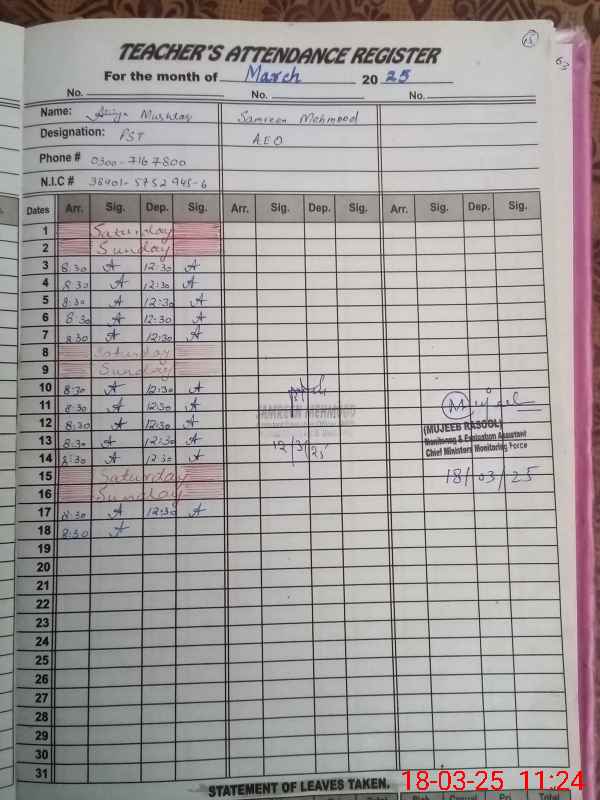 15
63
TEACHER'S ATTENDANCE REGISTER
For the month of March 2025
No. No. No.
Name: Mushtaq Samreen Mehmood
Designation: PST A.E.O
Phone # 0300-7167800
N.I.C # 38401-5752945-6
Dates Arr. Sig. Dep. Sig. Arr. Sig. Dep. Sig. Arr. Sig. Dep. Sig.
1 Saturday
2 Sunday
3 8:30 A 12:30 A
4 8:30 A 12:30 A
5 8:30 A 12:30 A
6 8:30 A 12:30 A
7 8:30 A 12:30 A
8 Saturday
9 Sunday
10 8:30 A 12:30 A
11 8:30 A 12:30 A JAMREEN MEHMOOD Mujeeb
12 8:30 A 12:30 A (MUJEEB RASOOL)
13 8:30 A 12:30 A 12/3/25 Monitoring & Evaluation Assistant
14 8:30 A 12:30 A Chief Ministers Monitoring Force
15 Saturday 18/03/25
16 Sunday
17 8:30 A 12:30 A
18 8:30 A
19
20
21
22
23
24
25
26
27
28
29
30
31
STATEMENT OF LEAVES TAKEN.
Total
18-03-25 11:24